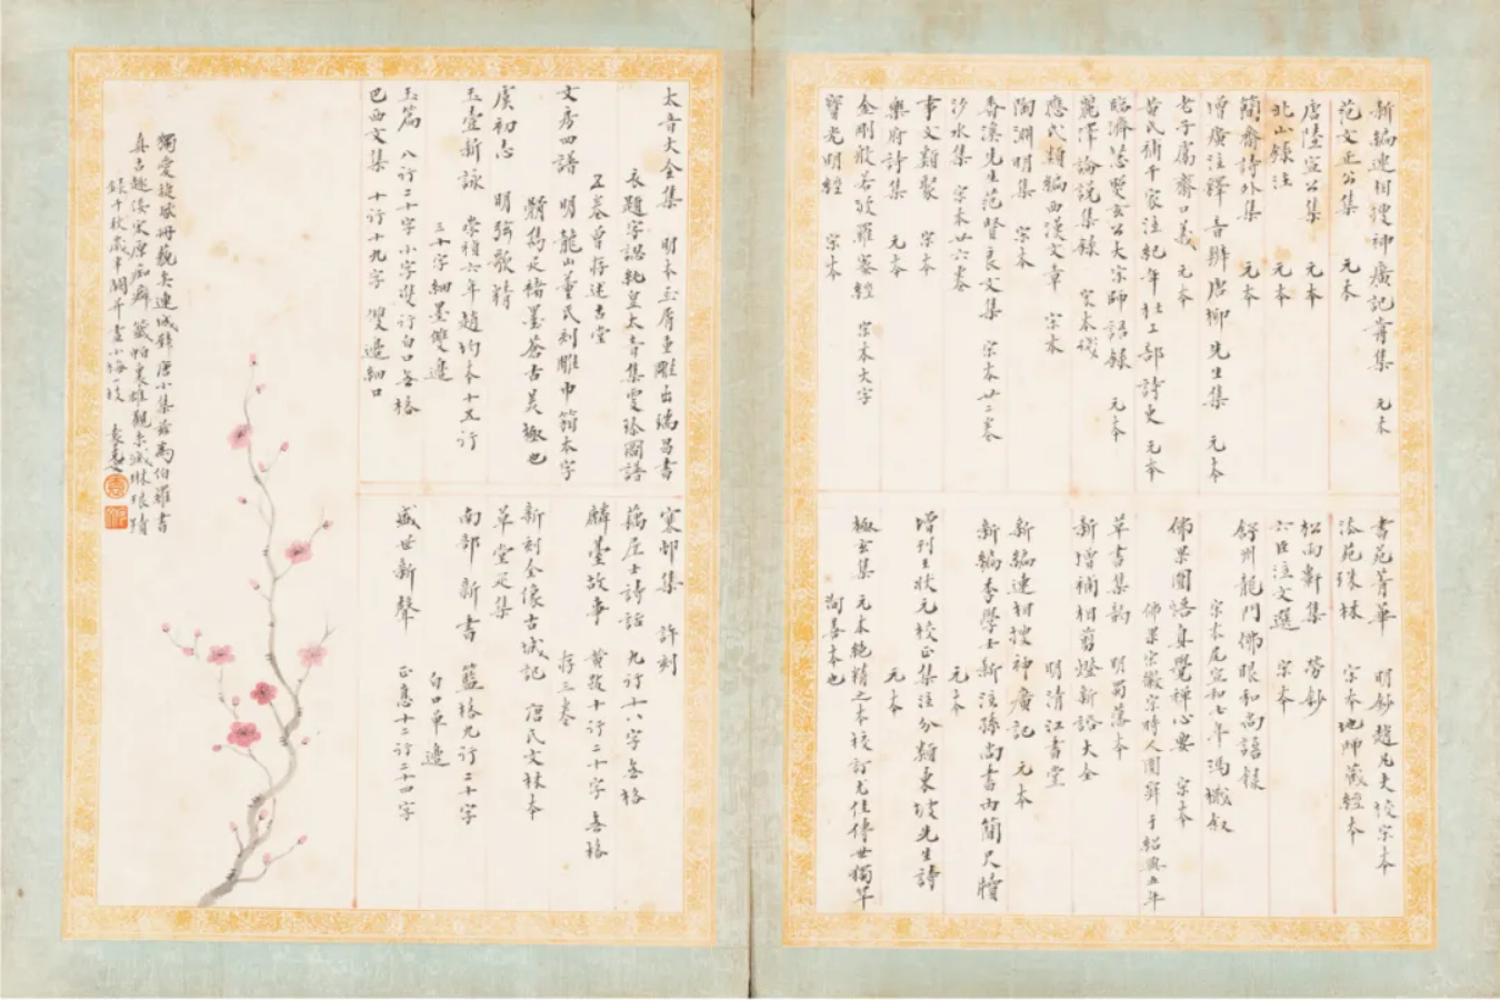 新編連相搜神廣記前集 元本
范文正公集 元本
唐陸宣公集 元本
北山錄注 元本
簡齋詩外集 元本
增廣注釋音辯唐柳先生集 元本
老子鬳齋口義 元本
黃氏補千家注紀年杜工部詩史 元本
臨濟慧照玄公大宗師語錄 元本
麗澤論說集錄 宋本殘
歷代類編西漢文章 宋本
陶淵明集 宋本
香溪先生范賢良文集 宋本廿二卷
涉水集 宋本廿六卷
事文類聚 宋本
樂府詩集 元本
金剛般若波羅蜜經 宋本大字
寶光明經 宋本
書苑菁華 明鈔趙凡夫校宋本
法苑珠林 宋本地師藏經本
松雨軒集 勞鈔
六臣注文選 宋本
舒州龍門佛眼和尚語錄
宋本尾宣和七年馮檝敘
佛果圜悟真覺禪心要 宋本
佛果宗徽宗時人圜寂于紹興五年
草書集韵 明蜀藩本
新增補相剪燈新話大全
明清江書堂
新編連相搜神廣記 元本
新編李學士新注孫尚書內簡尺牘
元本
增刊王狀元校正集注分類東坡先生詩
元本
極玄集 元本絕精之本校訂尤佳傳世獨罕
洵善本也
太音大全集 明本玉屑重雕出瑞昌書
衣題字認純皇太音集雯珍圖譜
五卷曾存述古堂
文房四譜 明龍山董氏刻雕巾箱本字
體雋足橋墨蒼古美極也
虞初志 明弦歌精
玉臺新詠 崇禎六年趙均本十五行
三十字細墨雙邊
玉篇 八行二十字小字雙行白口無格
巴西文集 十行十九字 雙邊細口
寒邨集 許刻
藕居士詩話 九行十八字無格
麟臺故事 黃跋十行二十字無格
存三卷
新刻全像古城記 唐氏文林本
草堂足集
南部新書 籃格九行二十字
白口單邊
盛世新聲 正悳十二行二十四字
獨愛旋風冊藝矣連城鋒唐小集茲為伯羅書
真古趣佞宋厚痴癖 籤帕裏雄觀未減琳琅蹟
錄千秋歲半闋并畫小梅一枝 袁克文